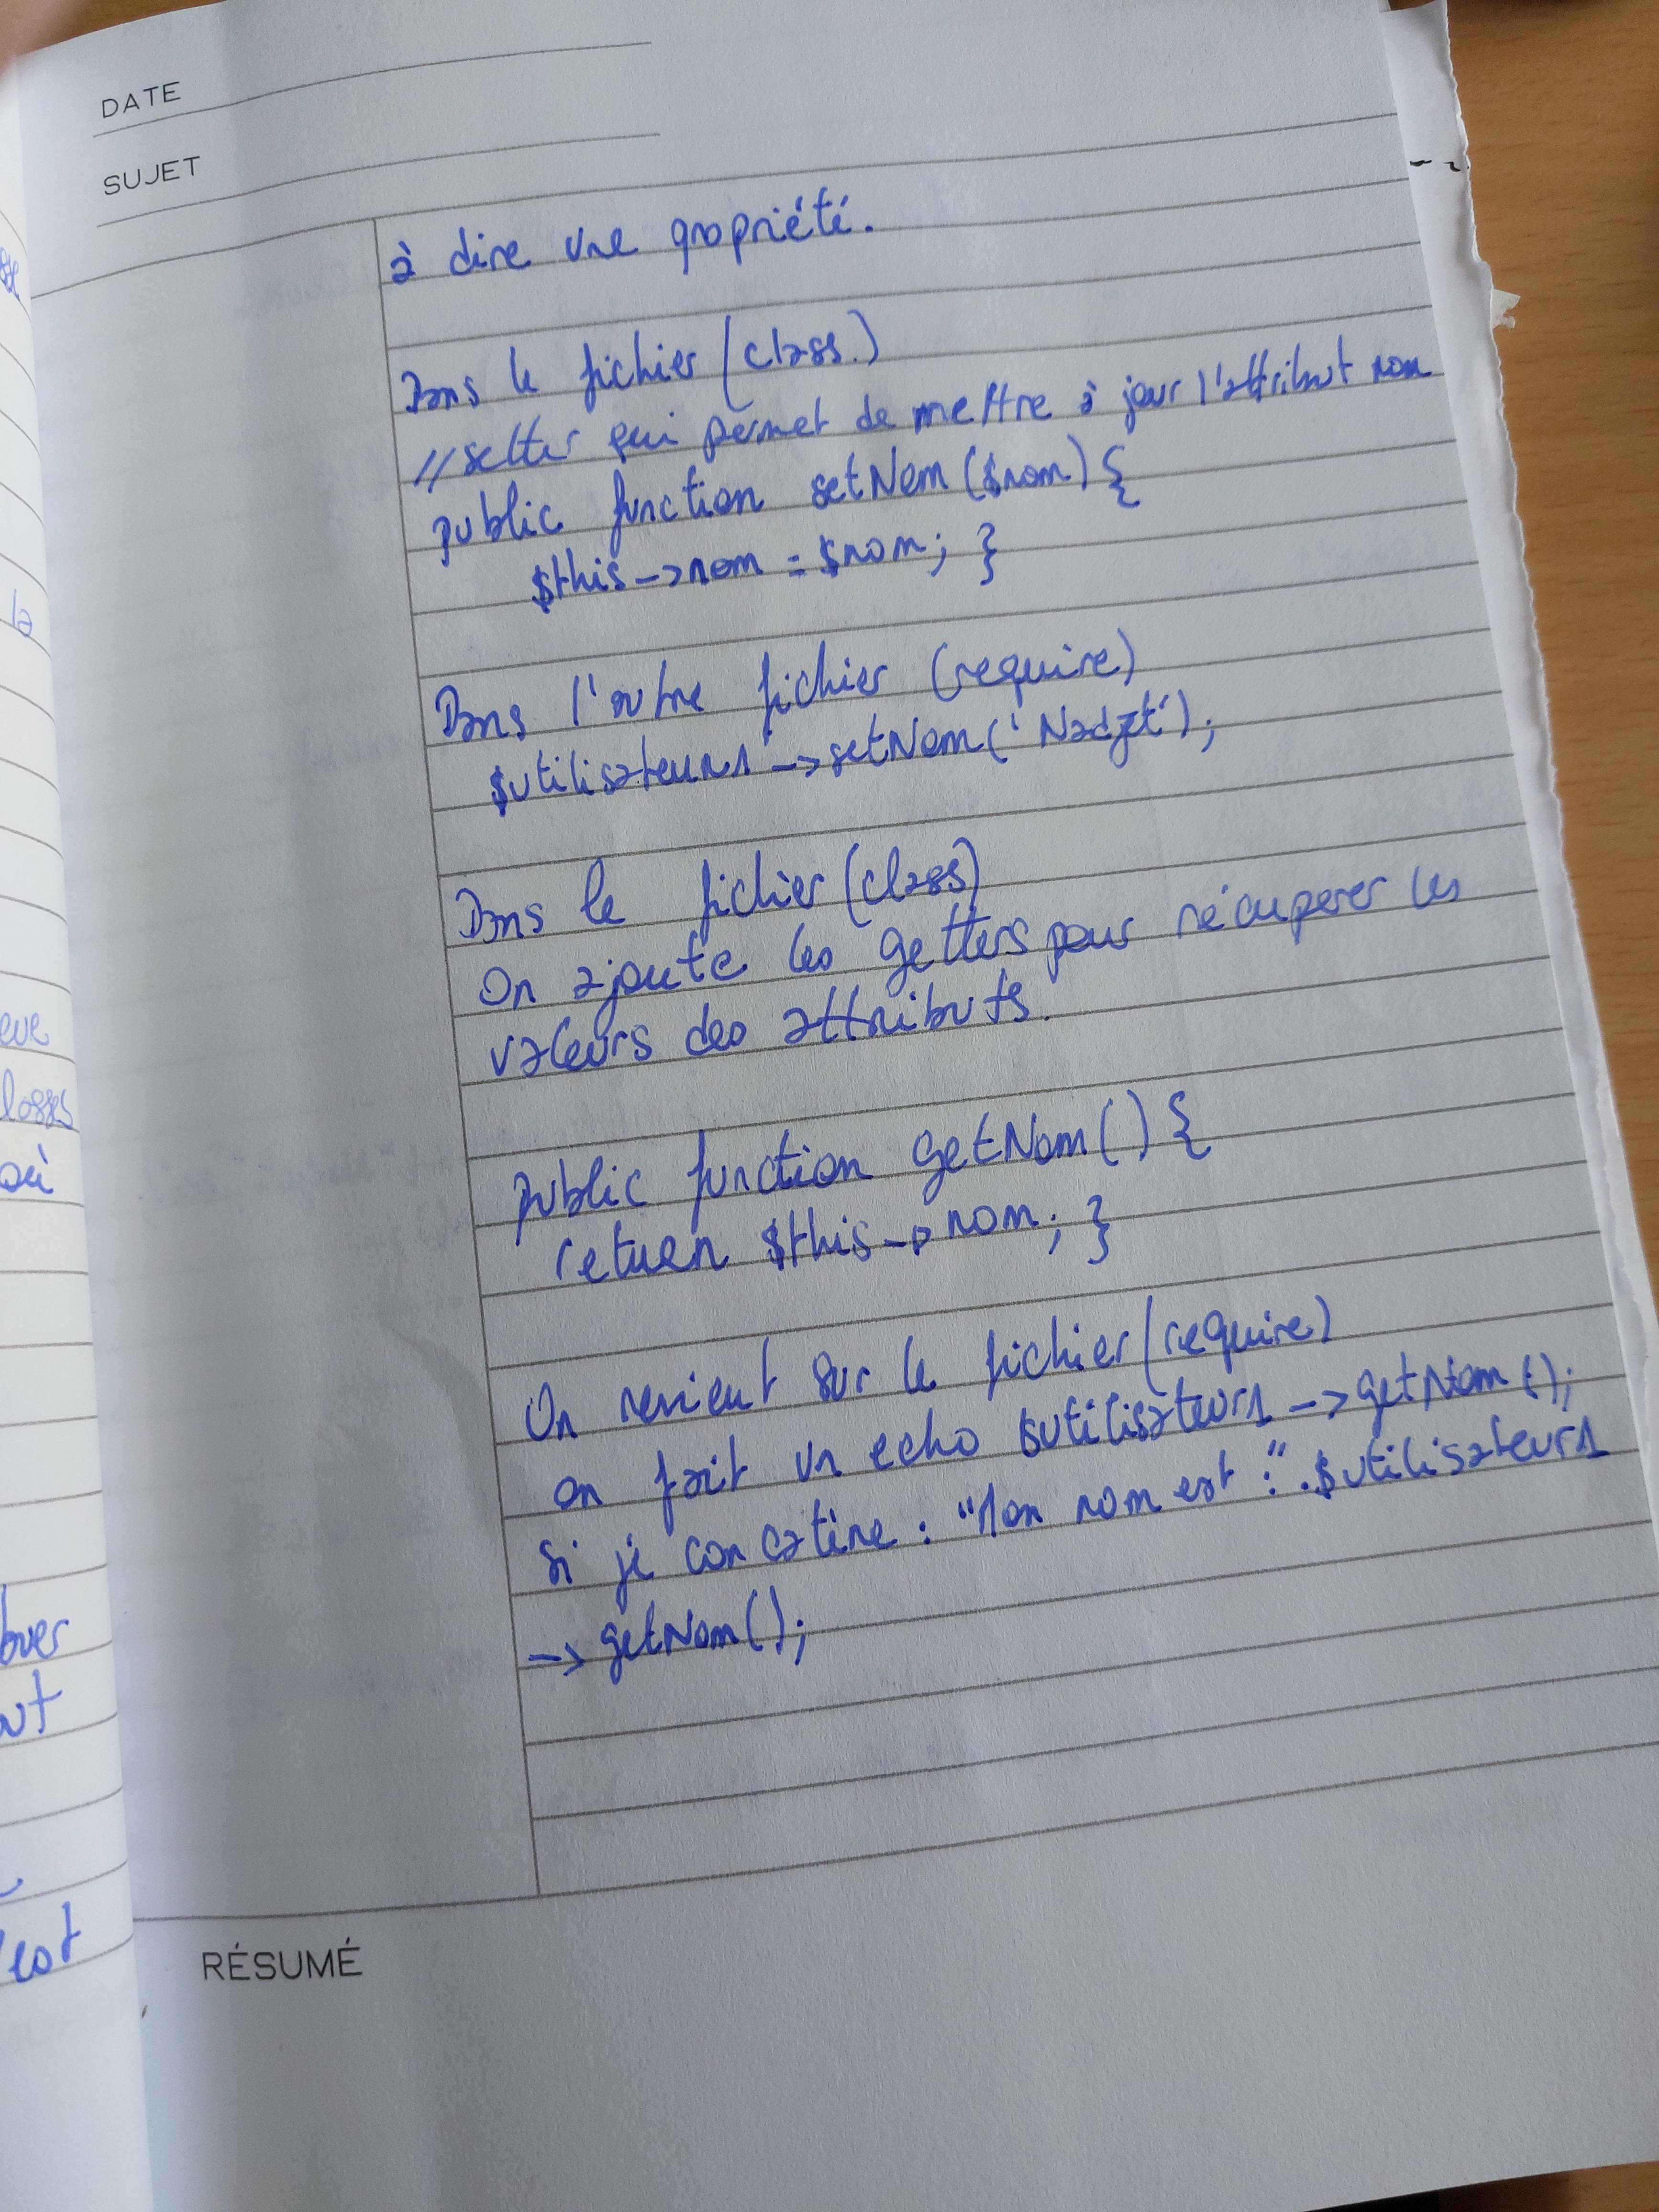 DATE
SUJET
à dire une propriété.
Dans le fichier (class.)
// setter qui permet de mettre à jour l'attribut nom
public function setNom ($nom) {
$this -> nom = $nom; }
Dans l'autre fichier (require)
$utilisateur1 -> setNom ('Nadjet');
Dans le fichier (class)
On ajoute les getters pour récuperer les
valeurs des attributs.
public function getNom () {
return $this -> nom; }
On revient sur le fichier (require)
on fait un echo $utilisateur1 -> getNom ();
Si je concatène : "Mon nom est :" . $utilisateur1
-> getNom ();
RÉSUMÉ
la
eve
où
ut